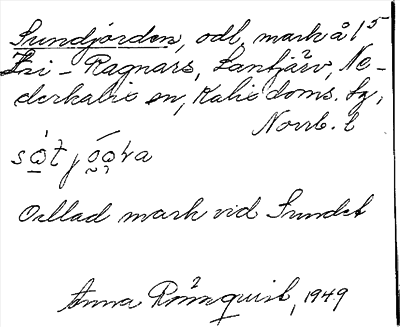 Sundjorden, odl. mark å 1⁵
Fri-Ragnars, Lantjärv, Ne-
derkalix sn, Kalix doms. sg,
Norrb. l
Odlad mark vid Sundet
Anna Rönnquist, 1949